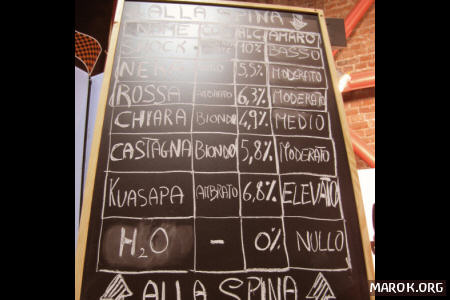 ALLA SPINA
NOME COL ALC. AMARO
SHOCK 10% BASSO
NERA 5,5% MODERATO
ROSSA AMBRATO 6,3% MODERATO
CHIARA BIONDO 4,9% MEDIO
CASTAGNA BIONDO 5,8% MODERATO
KUASAPA AMBRATO 6,8% ELEVATO
H₂O - 0% NULLO
ALLA SPINA
MAROK.ORG